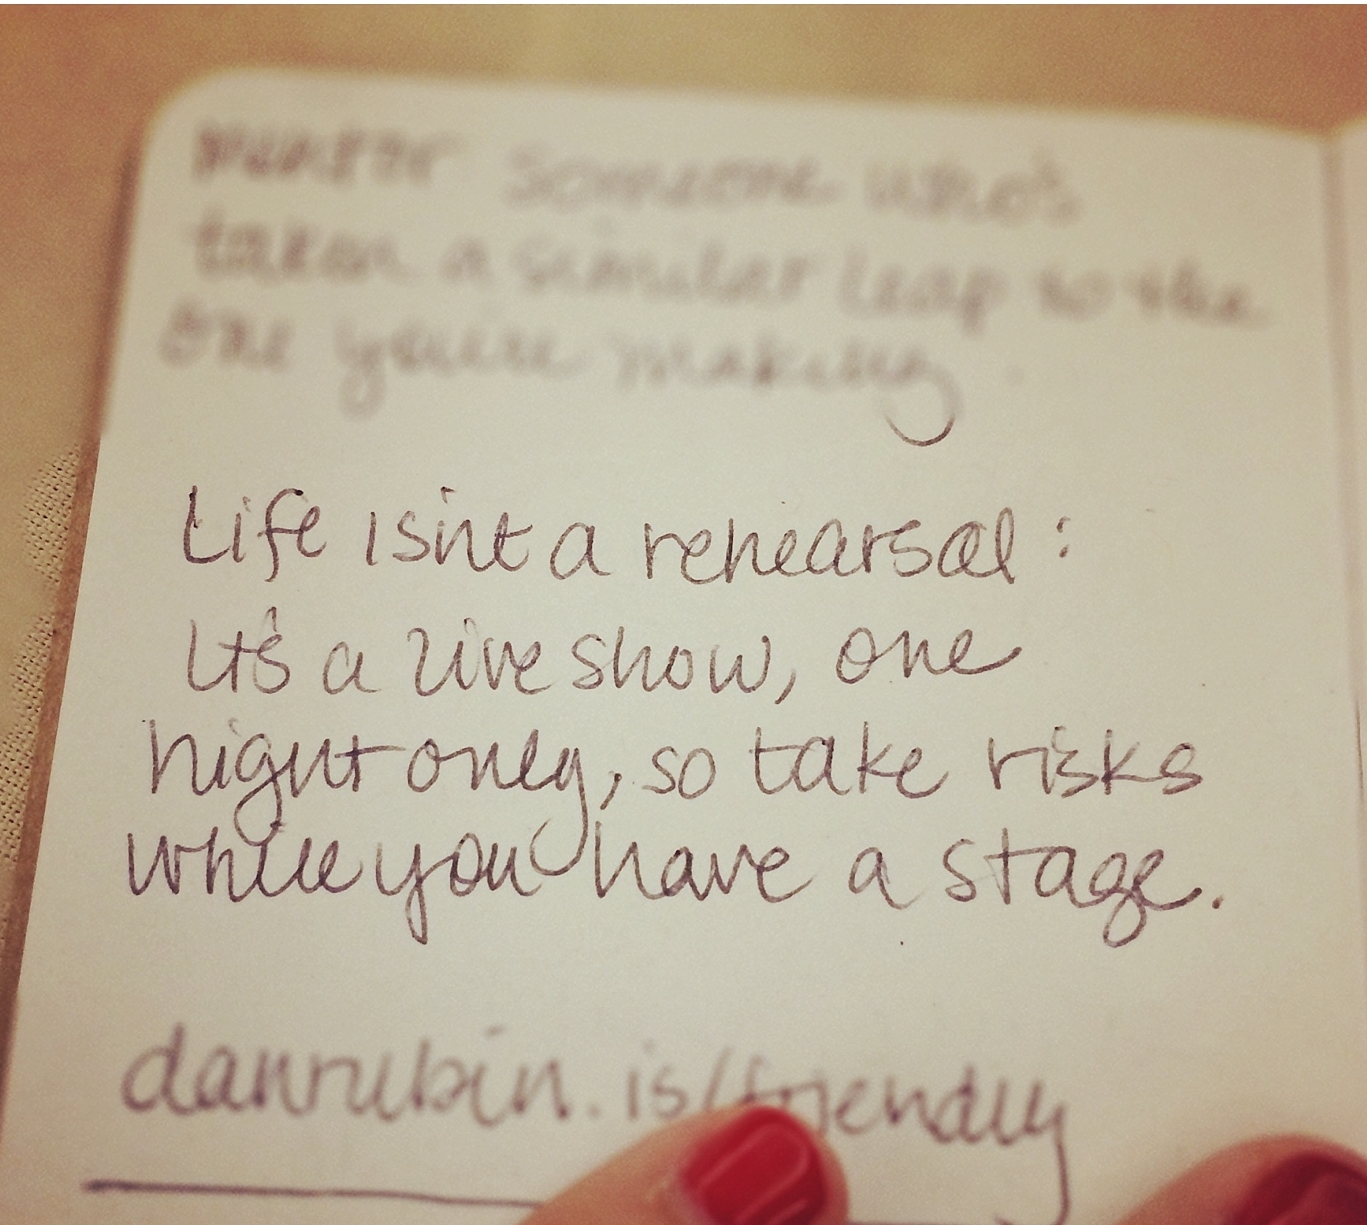 mentor someone who's
taken a similar leap to the
one you're making.
Life isn't a rehearsal:
It's a live show, one
night only, so take risks
while you have a stage.
danrubin.is/friendly